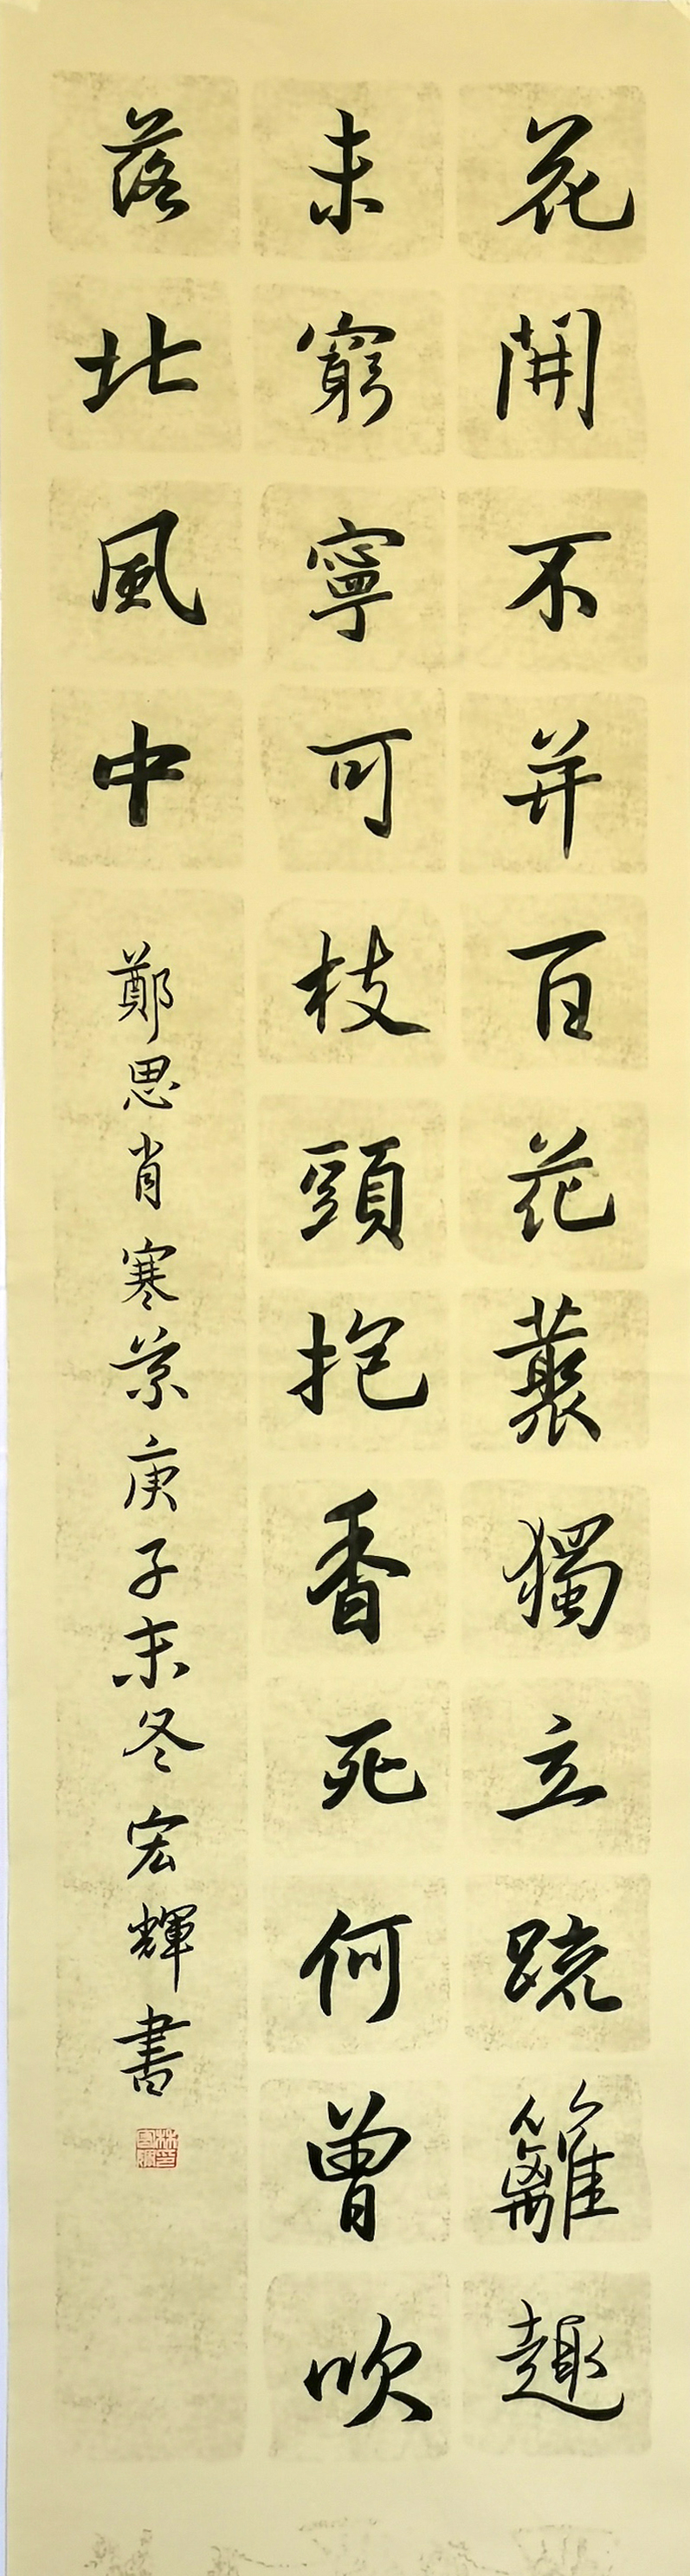 花開不并百花叢獨立疏籬趣
未窮寧可枝頭抱香死何曾吹
落北風中
鄭思肖寒菊庚子末冬宏輝書